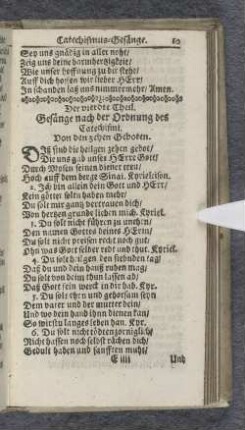 Catechismus-Gesänge. 89
Sey uns gnädig in aller noht/
Zeig uns deine barmhertzigkeit/
Wie unser hoffnung zu dir steht/
Auff dich hoffen wir lieber HErr/
In schanden laß uns nimmermehr/ Amen.
Der vierdte Theil.
Gesänge nach der Ordnung des
Catechismi.
Von den zehen Geboten.
DIß sind die heilgen zehen gebot/
Die uns gab unser HErre Gott/
Durch Mosen seinen diener treu/
Hoch auff dem berge Sinai. Kyrieleison.
2. Ich bin allein dein Gott und HErr/
Kein götter soltu haben mehr/
Du solt mir gantz vertrauen dich/
Von hertzen grunde lieben mich. Kyriel.
3. Du solt nicht führen zu unehrn/
Den namen Gottes deines HErrn/
Du solt nicht preisen recht noch gut/
Ohn was Gott selber redt und thut. Kyriel.
4. Du solt heilgen den siebnden tag/
Daß du und dein hauß ruhen mag/
Du solt von deim thun lassen ab/
Daß Gott sein werck in dir hab. Kyr.
5. Du solt ehrn und gehorsam seyn
Dem vater und der mutter dein/
Und wo dein hand ihn dienen kan/
So wirstu langes leben han. Kyr.
6. Du solt nicht tödten zorniglich/
Nicht hassen noch selbst rächen dich/
Gedult haben und sanfften muht/
E iiii Und